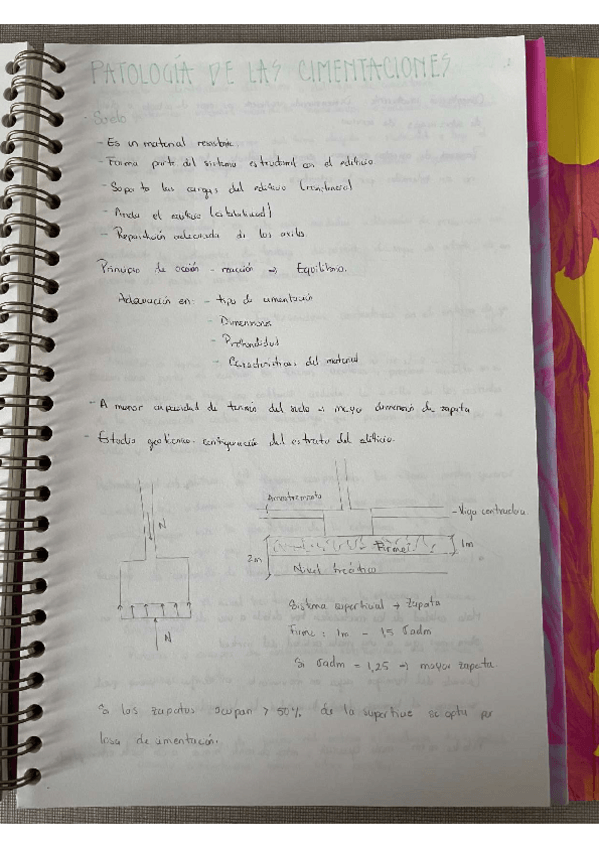 PATOLOGÍA DE LAS CIMENTACIONES
- Suelo
- Es un material resistente.
- Forma parte del sistema estructural con el edificio.
- Soporta las cargas del edificio (
- Ancla el edificio (estabilidad)
- Repartición adecuada de los axiles.
Principio de acción - reacción → Equilibrio.
Adecuación en: - tipo de cimentación
- Dimensiones
- Profundidad
- Características del material
- A menor capacidad de tensión del suelo → mayor dimensión de zapata
- Estudio geotécnico: configuración del estrato del edificio.
N
N
Arriostramiento
- Viga centradora
2m
Firme
1m
Nivel freático
Sistema superficial → Zapata
Firme: 1m - 1,5 σadm
Si σadm = 1,25 → mayor zapata.
Si las zapatas ocupan > 50% de la superficie se opta por
losa de cimentación.